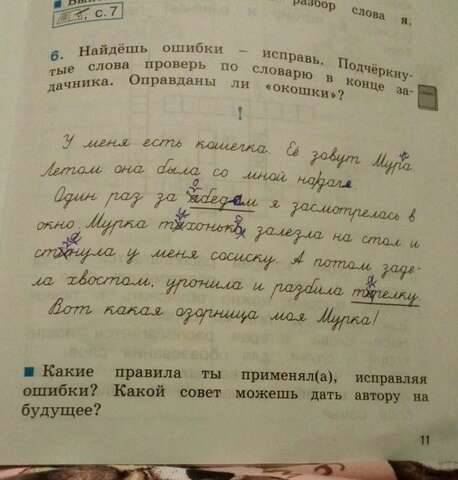 разбор слова я.
, с. 7
6. Найдёшь ошибки – исправь. Подчёркну-
тые слова проверь по словарю в конце за-
дачника. Оправданы ли «окошки»?
!
У меня есть кошечка. Её зовут Мура.
Летом она была со мной на даче.
Один раз за обедом я засмотрелась в
окно. Мурка тихонько залезла на стол и
стянула у меня сосиску. А потом заде-
ла хвостом, уронила и разбила тарелку.
Вот какая озорница моя Мурка!
Какие правила ты применял(а), исправляя
ошибки? Какой совет можешь дать автору на
будущее?
11